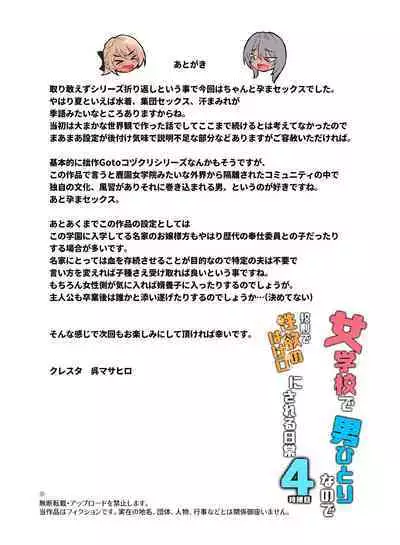 あとがき
取り敢えずシリーズ折り返しという事で今回はちゃんと孕まセックスでした。
やはり夏といえば水着、集団セックス、汗まみれが
季語みたいなところありますからね。
当初は大まかな世界観で作った話でしてここまで続けるとは考えてなかったので
まあまあ設定が後付け気味で説明不足な部分などありますがご容赦いただければ。
基本的に拙作Gotoコヅクリシリーズなんかもそうですが、
この作品で言うと鹿園女学院みたいな外界から隔離されたコミュニティの中で
独自の文化、風習がありそれに巻き込まれる男、というのが好きですね。
あと孕まセックス。
あとあくまでこの作品の設定としては
この学園に入学してる名家のお嬢様方もやはり歴代の奉仕委員との子だったり
する場合が多いです。
名家にとっては血を存続させることが目的なので特定の夫は不要で
言い方を変えれば子種さえ受け取れば良いという事ですね。
もちろん女性側が気に入れば婿養子に入れたりするのでしょうが。
主人公も卒業後は誰かと添い遂げたりするのでしょうか…(決めてない)
そんな感じで次回もお楽しみにして頂ければ幸いです。
クレスタ 呉マサヒロ
女学校で男ひとりなので
役割で性欲のはけ口にされる日常
4
※
無断転載・アップロードを禁止します。
当作品はフィクションです。実在の地名、団体、人物、行事などとは関係御座いません。